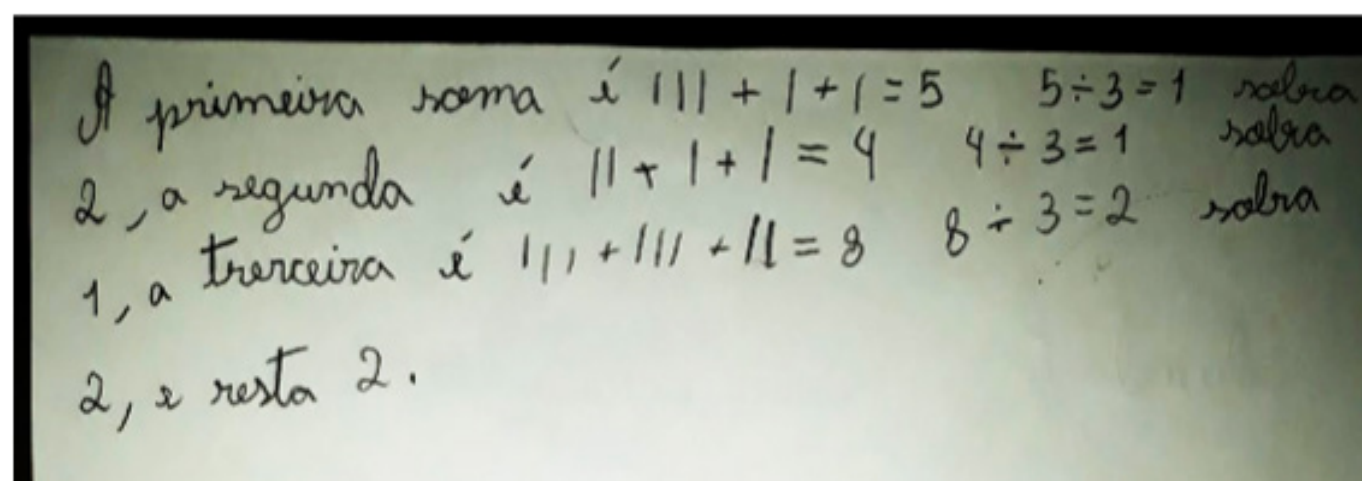 A primeira soma é ||| + | + | = 5 5 ÷ 3 = 1 sobra
2, a segunda é || + | + | = 4 4 ÷ 3 = 1 sobra
1, a trerceira é ||| + ||| + || = 8 8 ÷ 3 = 2 sobra
2, e resta 2.